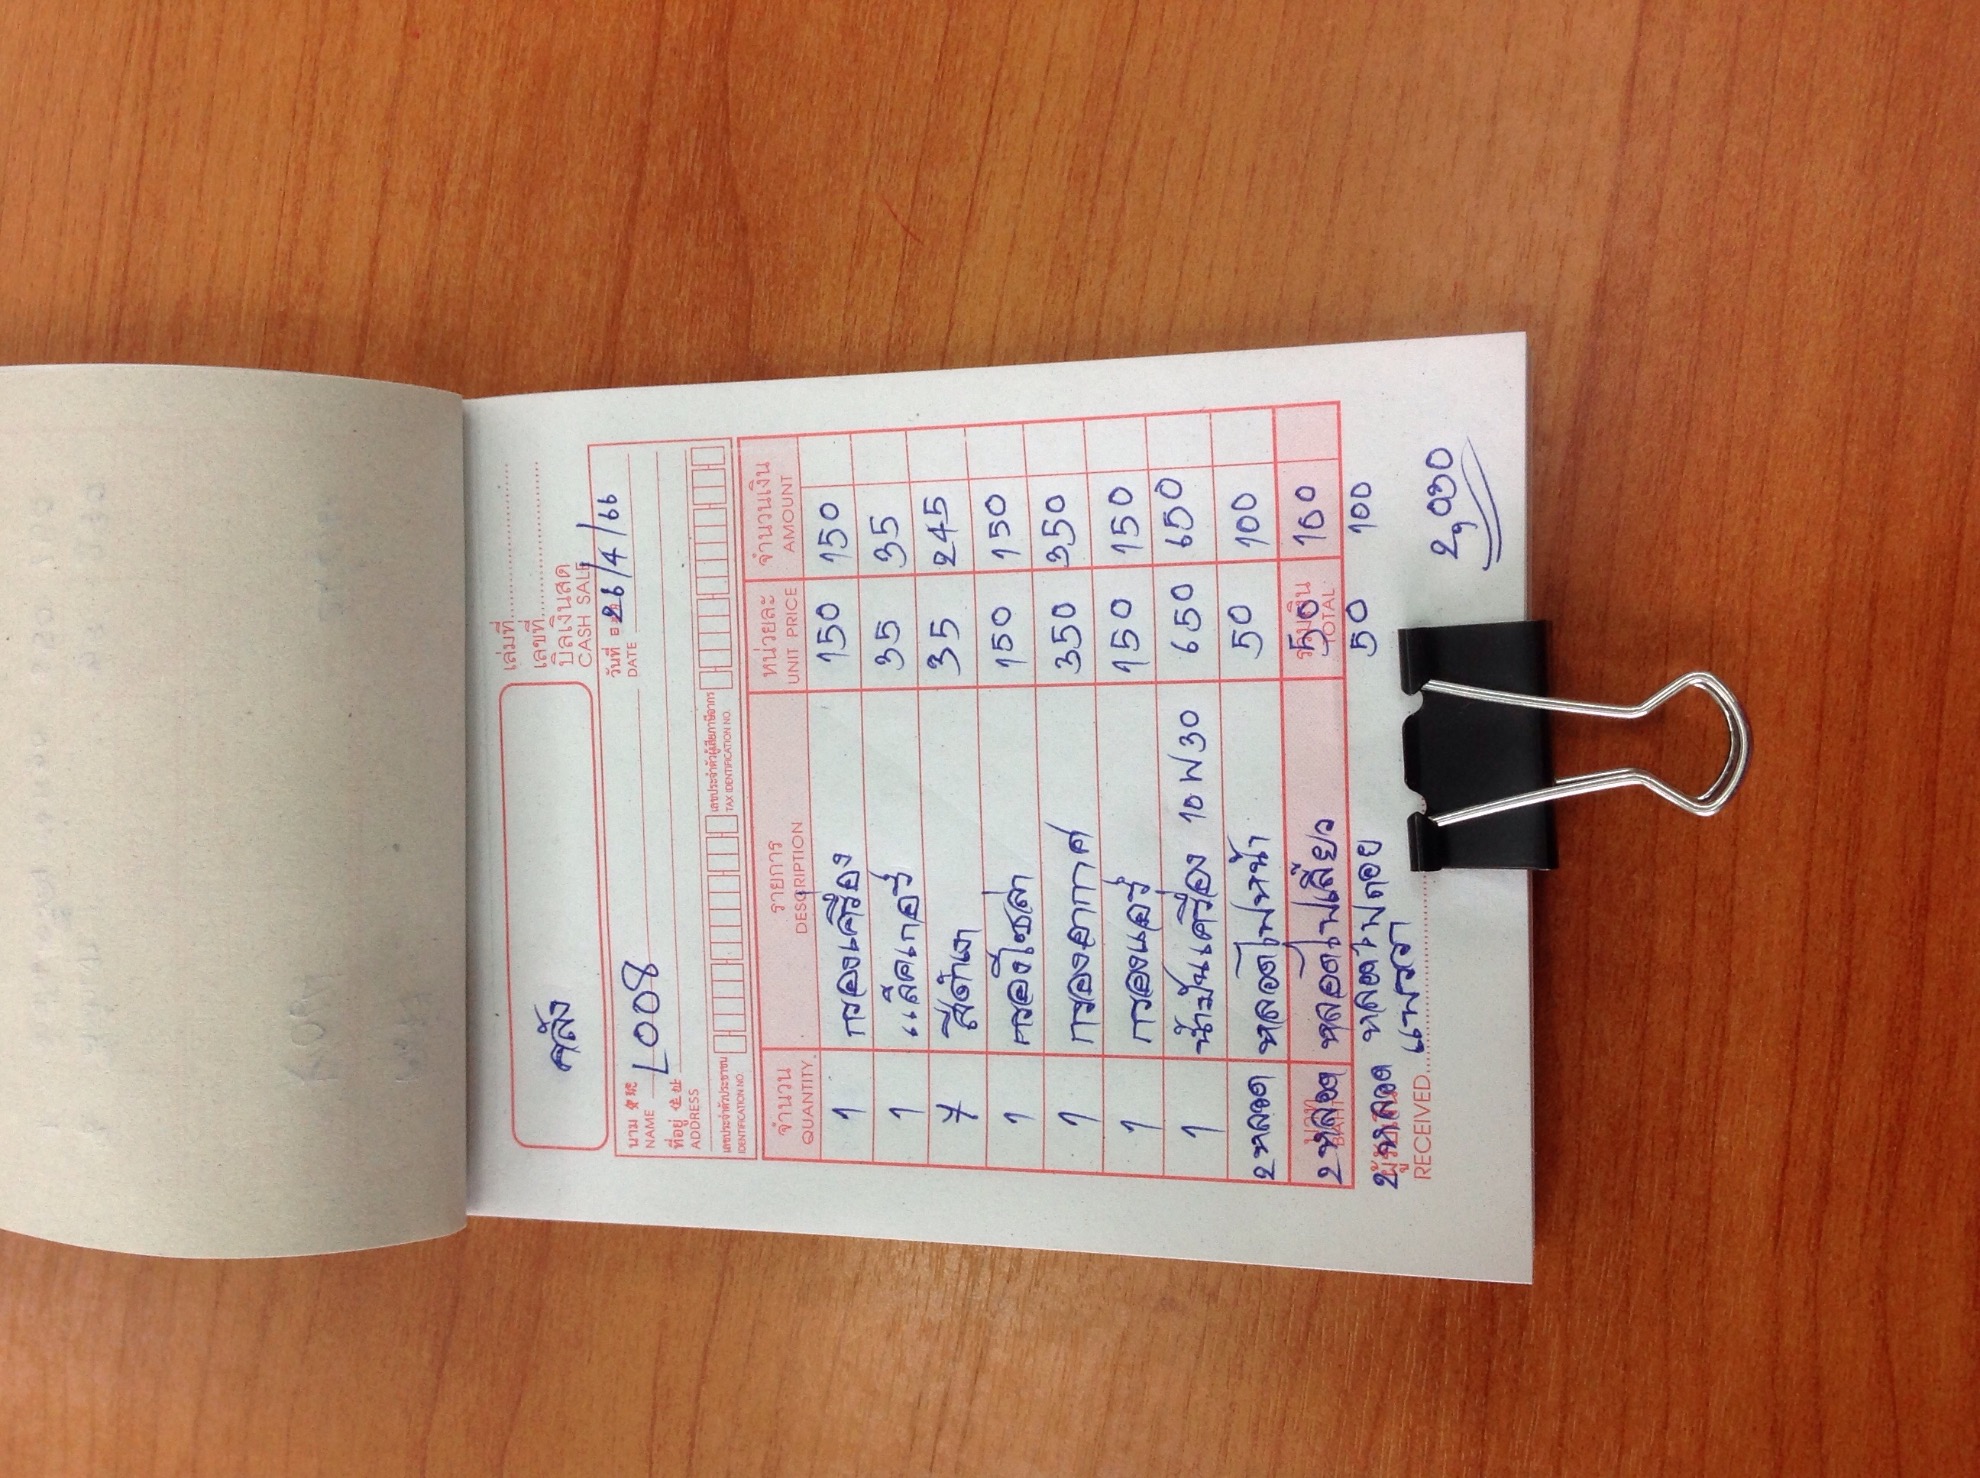 เล่มที่
เลขที่
คลัง
บิลเงินสด
CASH SALE
นาม
NAME
L008
วันที่
DATE
26/4/66
ที่อยู่
ADDRESS
เลขประจำตัวประชาชน
IDENTIFICATION NO.
เลขประจำตัวผู้เสียภาษีอากร
TAX IDENTIFICATION NO.
จำนวน รายการ หน่วยละ จำนวนเงิน
QUANTITY DESCRIPTION UNIT PRICE AMOUNT
1 กรองเครื่อง 150 150
1 แล็คเกอร์ 35 35
7 สีดำเงา 35 245
1 กรองโซล่า 150 150
1 กรองอากาศ 350 350
1 กรองแอร์ 150 150
1 น้ำมันเครื่อง 10 W 30 650 650
2 หลอด หลอดไฟหน้า 50 100
2 หลอด หลอดไฟเลี้ยว 50 100
บาท
BAHT
รวมเงิน
TOTAL
2 หลอด หลอดไฟถอย 50 100
ผู้รับเงิน
RECEIVED
แพรวา
2,030